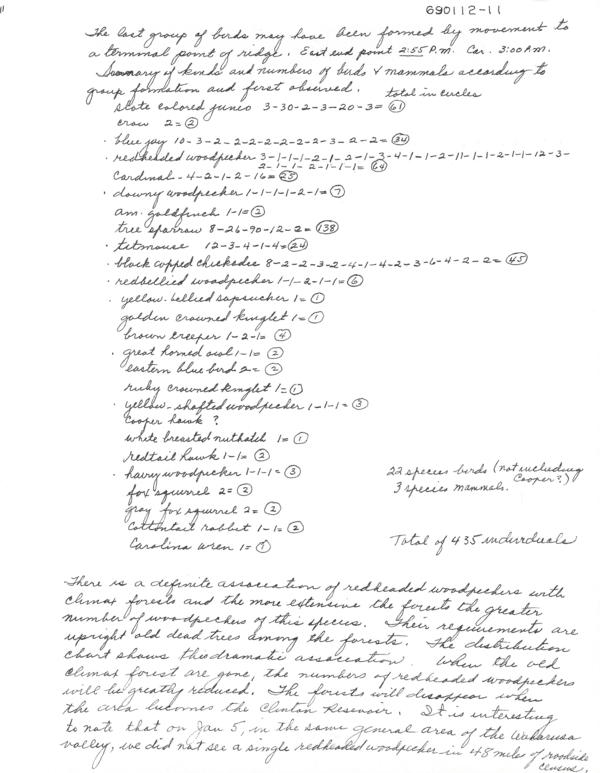 690112-11
The last group of birds may have been formed by movement to
a terminal point of ridge. East end point 2:55 P.M. Car. 3:00 P.M.
Summary of kinds and numbers of birds & mammals according to
group formation and first observed. total in circles
slate colored junco 3-30-2-3-20-3= 61
crow 2= 2
blue jay 10-3-2-2-2-2-2-2-3-2-2= 34
redheaded woodpecker 3-1-1-1-2-1-2-1-3-4-1-1-2-11-1-1-2-1-1-12-3-
2-1-1-2-1-1-1= 64
Cardinal-4-2-1-2-16= 25
downy woodpecker 1-1-1-1-2-1= 7
am. goldfinch 1-1= 2
tree sparrow 8-26-90-12-2= 138
titmouse 12-3-4-1-4= 24
black capped chickadee 8-2-2-3-2-4-1-4-2-3-6-4-2-2= 45
redbellied woodpecker 1-1-2-1-1= 6
yellow-bellied sapsucker 1= 1
golden crowned kinglet 1= 1
brown creeper 1-2-1= 4
great horned owl 1-1= 2
eastern blue bird 2= 2
ruby crowned kinglet 1= 1
yellow-shafted woodpecker 1-1-1= 3
Cooper hawk ?
white breasted nuthatch 1= 1
redtail hawk 1-1= 2
hairy woodpecker 1-1-1= 3
fox squirrel 2= 2
gray fox squirrel 2= 2
Cottontail rabbit 1-1= 2
Carolina wren 1= 1
22 species birds (not including
Cooper?)
3 species mammals.
Total of 435 individuals
There is a definite association of redheaded woodpeckers with
climax forests and the more extensive the forests the greater
number of woodpeckers of this species. Their requirements are
upright old dead trees among the forests. The distribution
chart shows this dramatic association. When the old
climax forest are gone, the numbers of redheaded woodpeckers
will be greatly reduced. The forests will disappear when
the area becomes the Clinton Resevoir. It is interesting
to note that on Jan 5, in the same general area of the Wakarusa
valley, we did not see a single redheaded woodpecker in 48 miles of roadside
census.